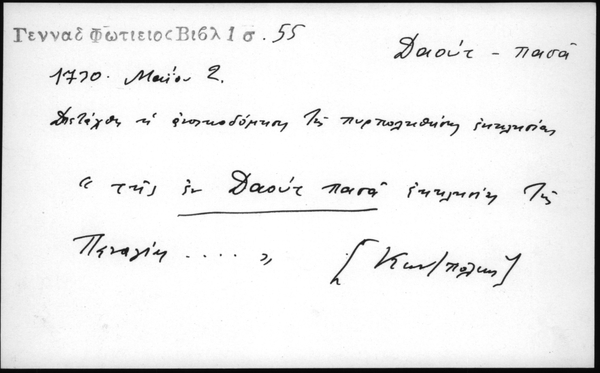 Γενναδ Φωτιειος Βιβλ 1 σ. 55
Δαούτ - πασᾶ
1730. Μαΐου 2.
Διετάχθη ἡ ἀνοικοδόμησις τῆς πυρποληθείσης ἐκκλησίας
" τῆς ἐν Δαούτ πασᾶ ἐκκλησίας τῆς
Παναγίας .... " [Κων/πολεως]